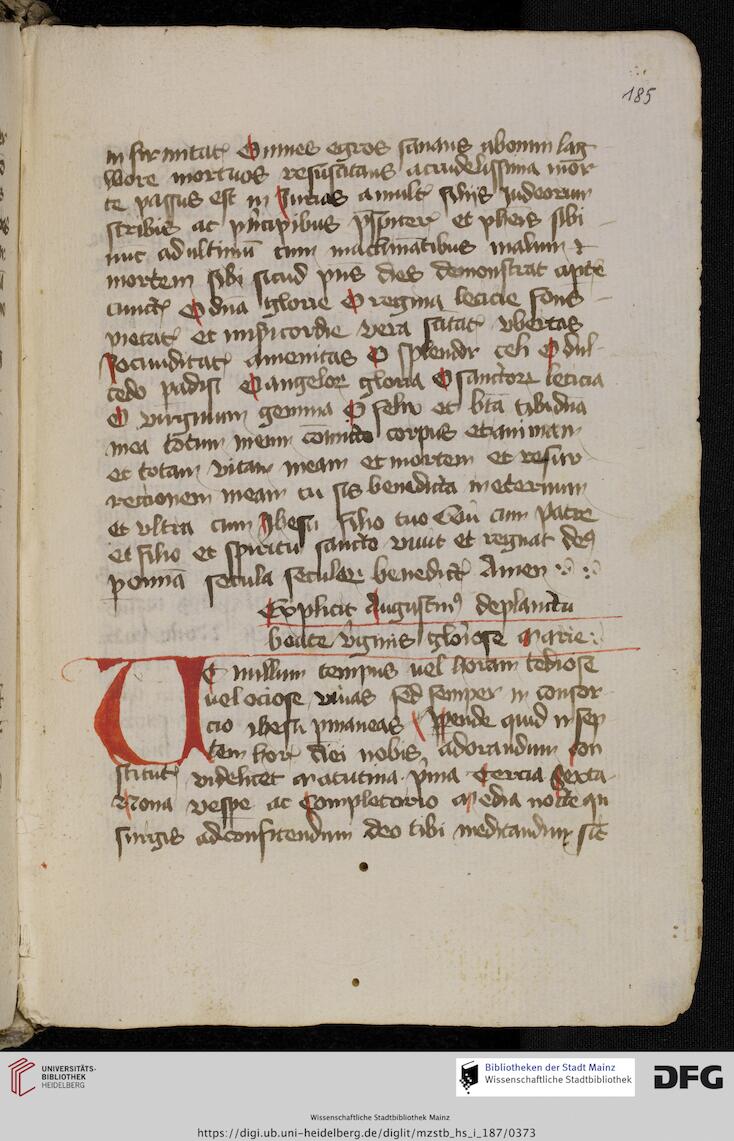 185
in firmitat Omnes egros sanans ab omni lag
wore mortuos resuscitans a crudelissima mor
te passus est in Iurias a mult filiis judeorum
scribis ac pncipibus pspiter et pheis sibi
nuc ad ultimu cum machinatibus malum
mortem sibi sicud pns dies demonstrat apte
cunct O dna glorie O regina leticie fons
pietat et misicordie vera scitat vbertas
Jocunditat amenitas O splendor celi O dul
cedo padisi O angelor gloria O sanctor leticia
O virginum gemma O felix et bta tibi dna
mea totum meum comitto corpus et animam
et totam vitam meam et mortem et resur
rectionem meam tu sis benedicta in eternum
et vltra cum Ihesu filio tuo Cui cum patre
et filio et spiritu sancto viuit et regnat des
p omnia secula seculor benedict Amen
Explicit Augustin de planctu
beate virginis gloriose marie
Ut nullum tempus vel horam tediose
uel ociose viuas sed semper in consor
cio ihesu pmaneas Appende quid in sep
tem hor diei nobis adorandum con
stitut videlicet matutina pma Tercia Sexta
Nona vespe ac Completorio media nocte qn
surgis ad confitendum deo tibi meditandum sit
UNIVERSITÄTS-
BIBLIOTHEK
HEIDELBERG
Bibliotheken der Stadt Mainz
Wissenschaftliche Stadtbibliothek
DFG
Wissenschaftliche Stadtbibliothek Mainz
https://digi.ub.uni-heidelberg.de/diglit/mzstb_hs_i_187/0373